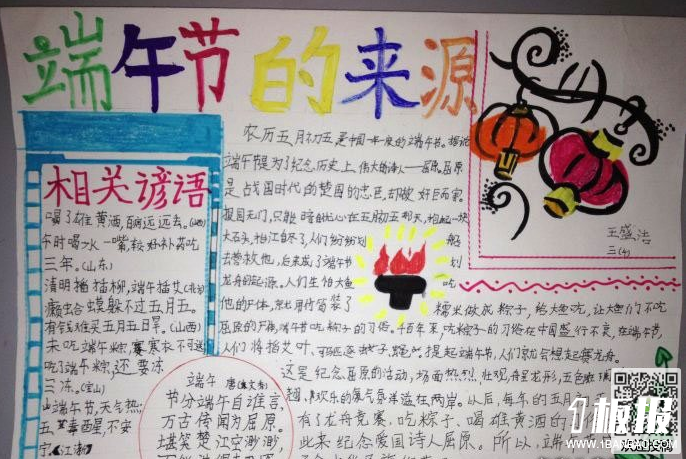 端午节的来源
相关谚语
喝了雄黄酒,百病远远去。(山西)
午时喝水一嘴,较好补药吃
三年。(山东)
清明插柳,端午插艾
癞蛤蟆躲不过五月五。
有钱难买五月五日旱。(山西)
未吃端午粽,寒衣不可送
吃了端午粽,还要冻
三冻。
端午节,天气热
五毒醒,不安
宁
端午
节分端午自谁言,
万古传闻为屈原。
堪笑楚江空渺渺,
农历五月初五是中国一年一度的端午节。据说
端午节是为了纪念历史上伟大的诗人——屈原。屈原
是战国时代的楚国的忠臣,却被奸臣所害。
报国无门,只能暗自忧心在五月初五那天,抱起一块
大石头,投江自尽了,人们纷纷划船
去营救他,后来成了端午节划
龙舟的起源。人们生怕大鱼吃
他的尸体,就用竹筒装了糯米做成粽子,给大鱼吃,让大鱼们不吃
屈原的尸体,端午节吃粽子的习俗。千百年来,吃粽子的习俗在中国盛行不衰,在端午节,
人们将捂艾叶提起端午节,人们就会想起赛龙舟。
这是纪念屈原的活动,场面热烈壮观,舟呈龙形,五色
欢乐的氛气氛洋溢在两岸。从后,每年的五月
有了龙舟竞赛、吃粽子、喝雄黄酒的
此来纪念爱国诗人屈原。所以,端
王盛浩
三(4)
1板报
WWW.1BANBAO.COM
欢迎投稿